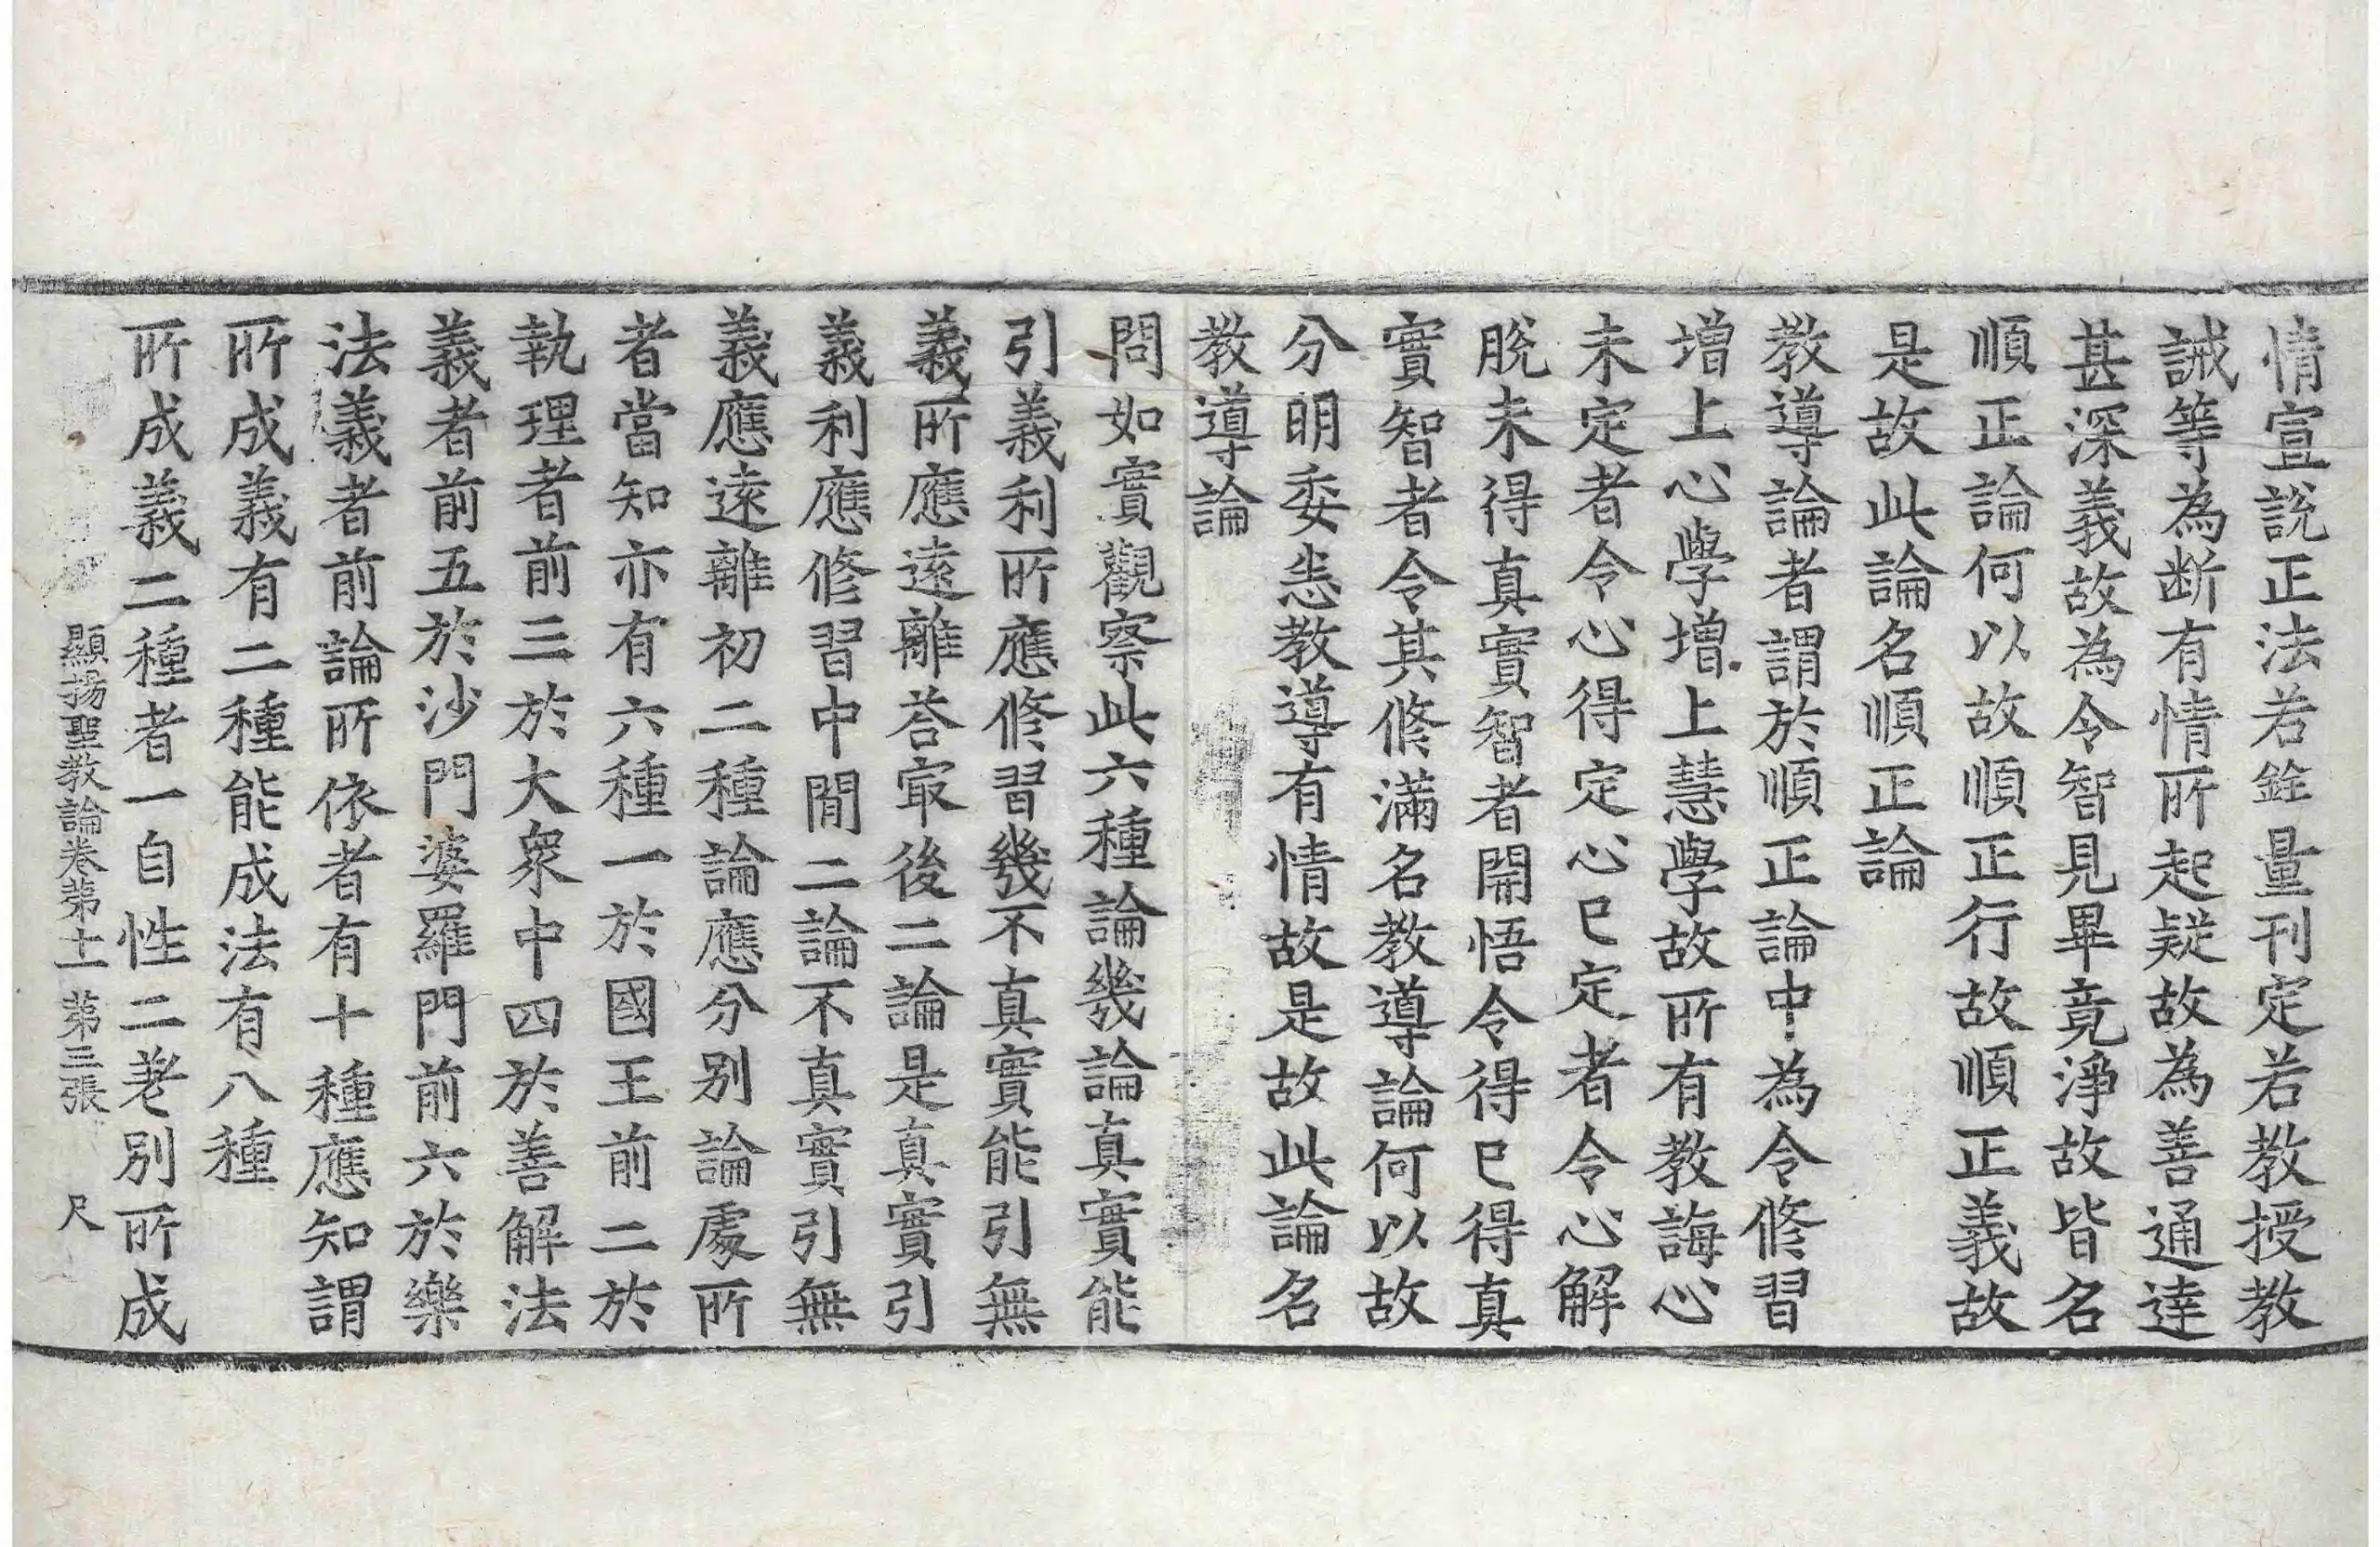 情宣說正法若銓量刊定若教授教
誡等為断有情所起疑故為善通達
甚深義故為令智見畢竟淨故皆名
順正論何以故順正行故順正義故
是故此論名順正論
教導論者謂於順正論中為令修習
增上心學增上慧學故所有教誨心
未定者令心得定心已定者令心解
脫未得真實智者開悟令得已得真
實智者令其修滿名教導論何以故
分明委悉教導有情故是故此論名
教導論
問如實觀察此六種論幾論真實能
引義利所應修習幾不真實能引無
義所應遠離荅㝡後二論是真實引
義利應修習中閒二論不真實引無
義應遠離初二種論應分別論處所
者當知亦有六種一於國王前二於
執理者前三於大衆中四於善解法
義者前五於沙門婆羅門前六於樂
法義者前論所依者有十種應知謂
所成義有二種能成法有八種
所成義二種者一自性二差別所成
顯揚聖教論卷苐十一 苐三張 尺